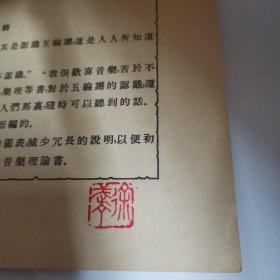 其是認識五線譜,這是人人所知道
不認識。”“我很歡喜音樂,苦於不
樂理等書,對於五線譜的認識,還
人們那裏,隨時可以聽到的話。
而編的。
圖表,減少冗長的說明,以便初
音樂理論書。